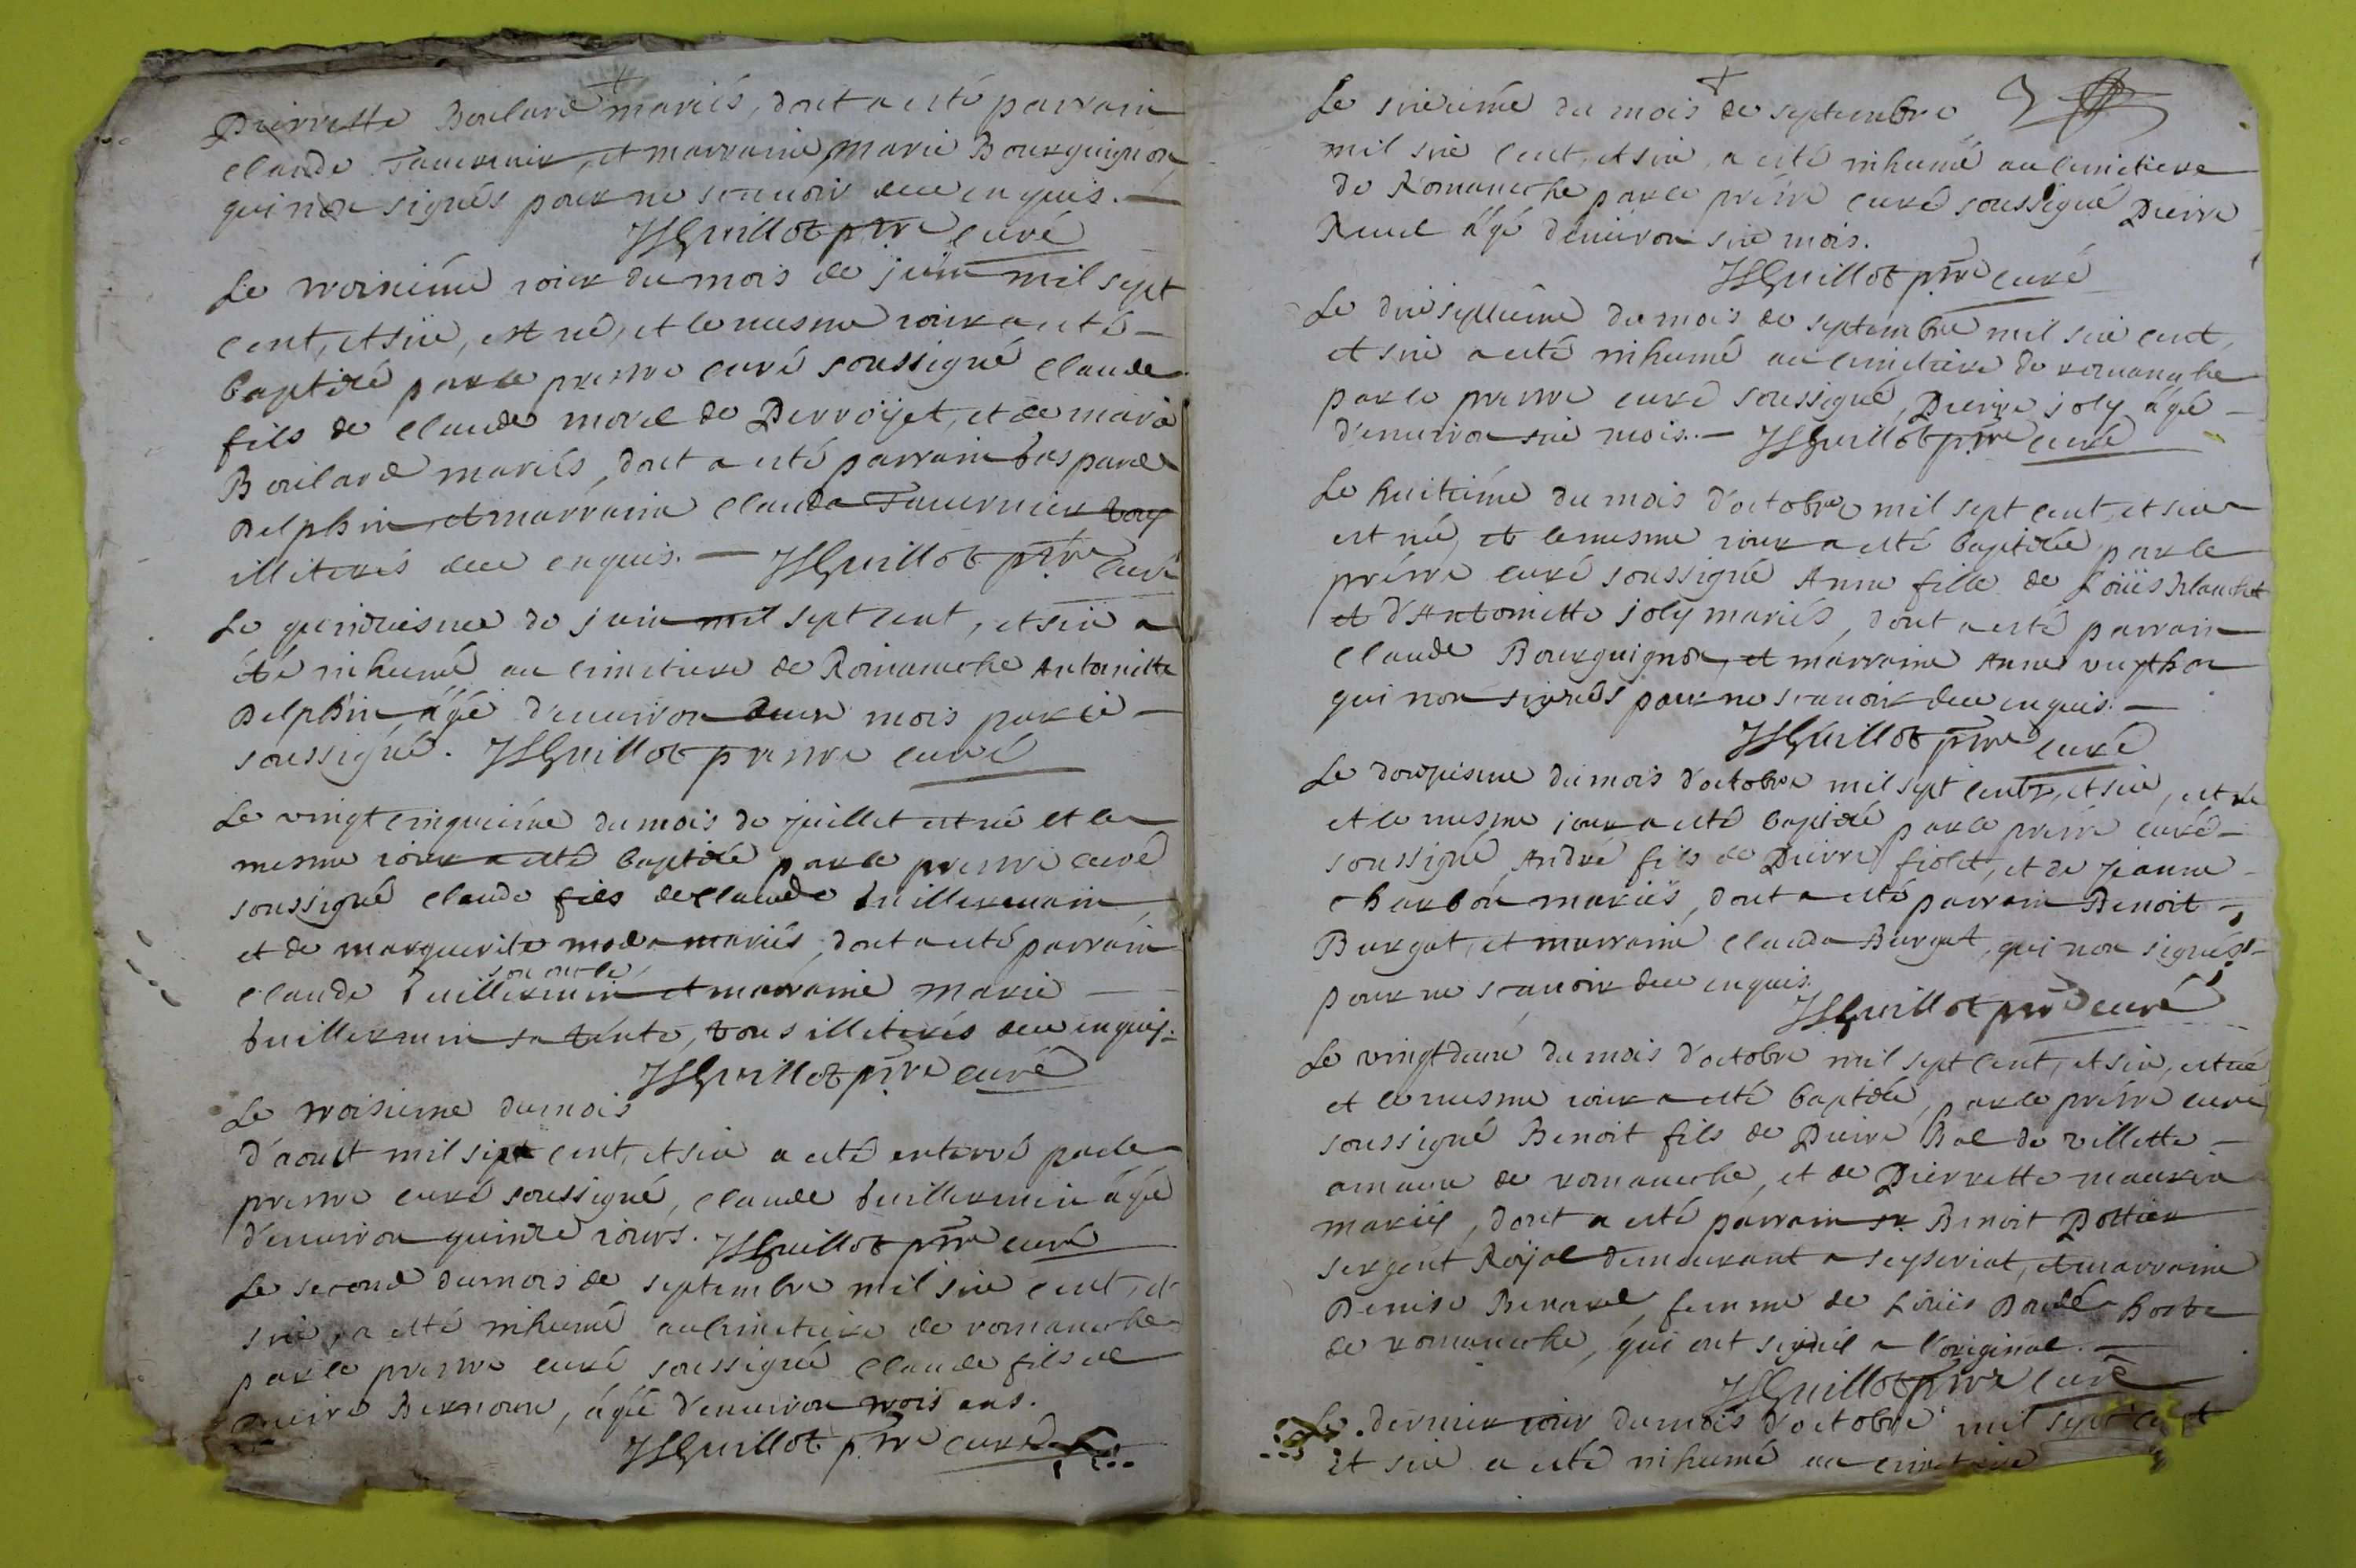 Pierrette Boulard mariés, dont a esté parrain
claude Tavernier, et marraine, marie Bourguignon
qui non signés pour ne scauoir deue enquis. —
JSGuillot ptre curé
Le troisiéme iour du mois de juin mil sept
cent, et six, est né, et le mesme iour a esté —
baptizé par le prestre curé soussigné claude
fils de claude morel de Perroyet, et de marie
Boulard mariés, dont a esté parrain
Delphin, et marraine clauda Tavernier tous
illiterés deue enquis. — JSGuillot ptre curé
Le quinziesme de juin mil sept cent, et six a
été inhumé au cimetiere de Romaneche Antoinette
Delphin, âgé d'enuiron deux mois par le —
soussigné. JSGuillot prestre curé
Le vingt cinquiéme du mois de juillet est né et le
mesme iour a esté baptizé par le prestre curé
soussigné claude fils de claude buillermin,
et de marguerite mariés, dont a esté parrain
son oncle
claude buillermin et marraine marie —
buillermin sa tante, tous illiterés deue enquis.
JSGuillot ptre curé
Le troisieme du mois
d'aoust mil sept cent, et six a esté enterré par le
prestre curé soussigné, claude buillermin âgé
d'enuiron quinze iours. JSGuillot ptre curé
Le second du mois de septembre mil six cent, et
six, a esté inhumé au cimetiere de romaneche
par le prestre curé soussigné claude fils de
pierre Bernoux, âgé d'enuiron trois ans.
JSGuillot ptre curé
Le sixiéme du mois de septembre
mil six cent, et six, a esté inhumé au cimetiere
de Romaneche par le prêtre curé soussigné Pierre
âgé d'enuiron six mois.
JSGuillot ptre curé
Le dixseptiéme du mois de septembre mil six cent,
et six a esté inhumé au cimetiere de romaneche
par le prestre curé soussigné, Pierre joly âgé —
d'enuiron six mois. — JSGuillot ptre curé
Le huitiéme du mois d'octobre mil sept cent, et six
est née, et le mesme iour a esté baptizée par le
prêtre curé soussigné Anne fille de Loüis
et d'Antoinette joly mariés, dont a esté parrain
claude Bourguignon, et marraine Anne
qui non signés pour ne scauoir deue enquis. —
JSGuillot ptre curé
Le douziesme du mois d'octobre mil sept cent, et six, est né
et le mesme jour a esté baptizé par le prêtre curé —
soussigné, André fils de Pierre fiolet, et de jeanne
charbon mariés, dont a esté parrain Benoit —
Burgat, et marraine clauda Burgat, qui non signés
pour ne scauoir deue enquis.
JSGuillot ptre curé
Le vingtdeux du mois d'octobre mil sept cent, et six, est né
et le mesme iour a esté baptizé, par le prêtre curé
soussigné Benoit fils de Pierre Bal de villette —
de romaneche, et de Pierrette
mariés, dont a esté parrain sr Benoit Pottier
sergent Royal demeurant a seyseriat, et marraine
Denise femme de Loüis hoste
de romaneche, qui ont signé a l'original. —
JSGuillot ptre curé
Le dernier iour du mois d'octobre mil sept cent
et six a esté inhumé au cimetiere